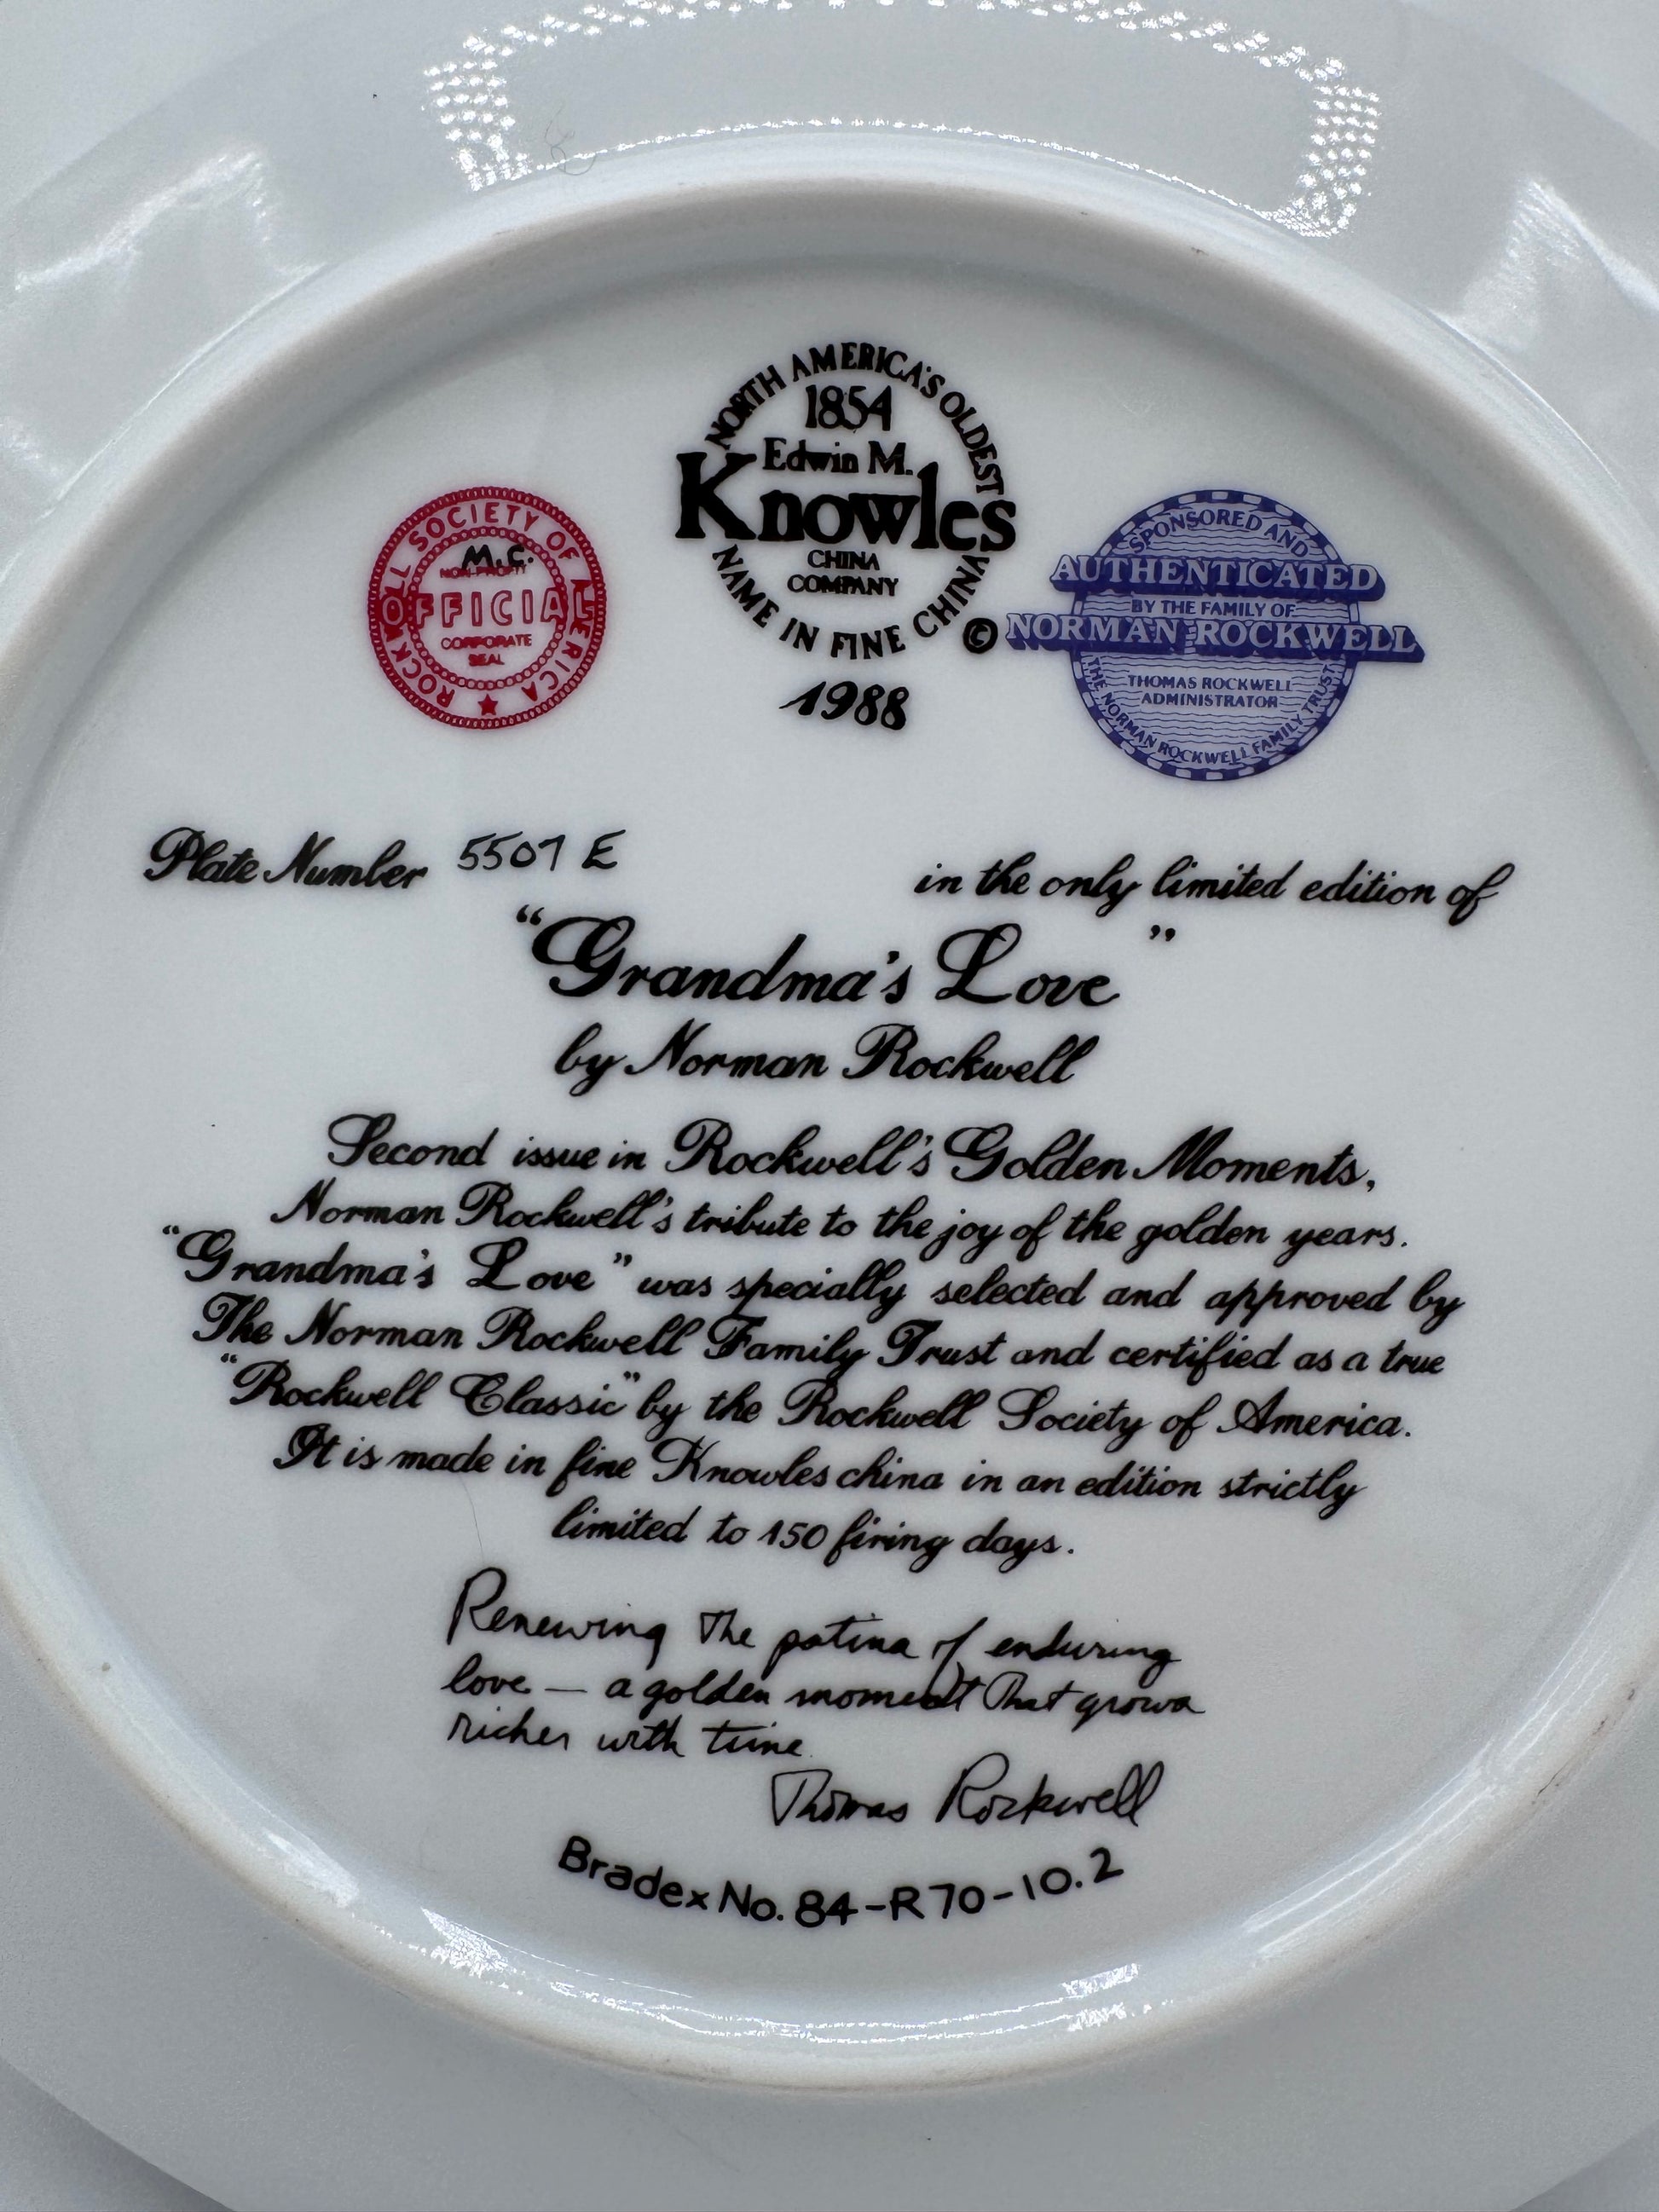 NORTH AMERICA'S OLDEST
1854
Edwin M.
Knowles
CHINA
COMPANY
NAME IN FINE CHINA
©
1988
ROCKWELL SOCIETY OF AMERICA
M.C.
NON-PROFIT
OFFICIAL
CORPORATE
SEAL
SPONSORED AND
AUTHENTICATED
BY THE FAMILY OF
NORMAN ROCKWELL
THOMAS ROCKWELL
ADMINISTRATOR
THE NORMAN ROCKWELL FAMILY TRUST
Plate Number 5507 E in the only limited edition of
"Grandma's Love"
by Norman Rockwell
Second issue in Rockwell's Golden Moments,
Norman Rockwell's tribute to the joy of the golden years.
"Grandma's Love" was specially selected and approved by
The Norman Rockwell Family Trust and certified as a true
"Rockwell Classic" by the Rockwell Society of America.
It is made in fine Knowles china in an edition strictly
limited to 150 firing days.
Renewing the patina of enduring
love — a golden moment that grows
richer with time.
Thomas Rockwell
Bradex No. 84-R70-10.2